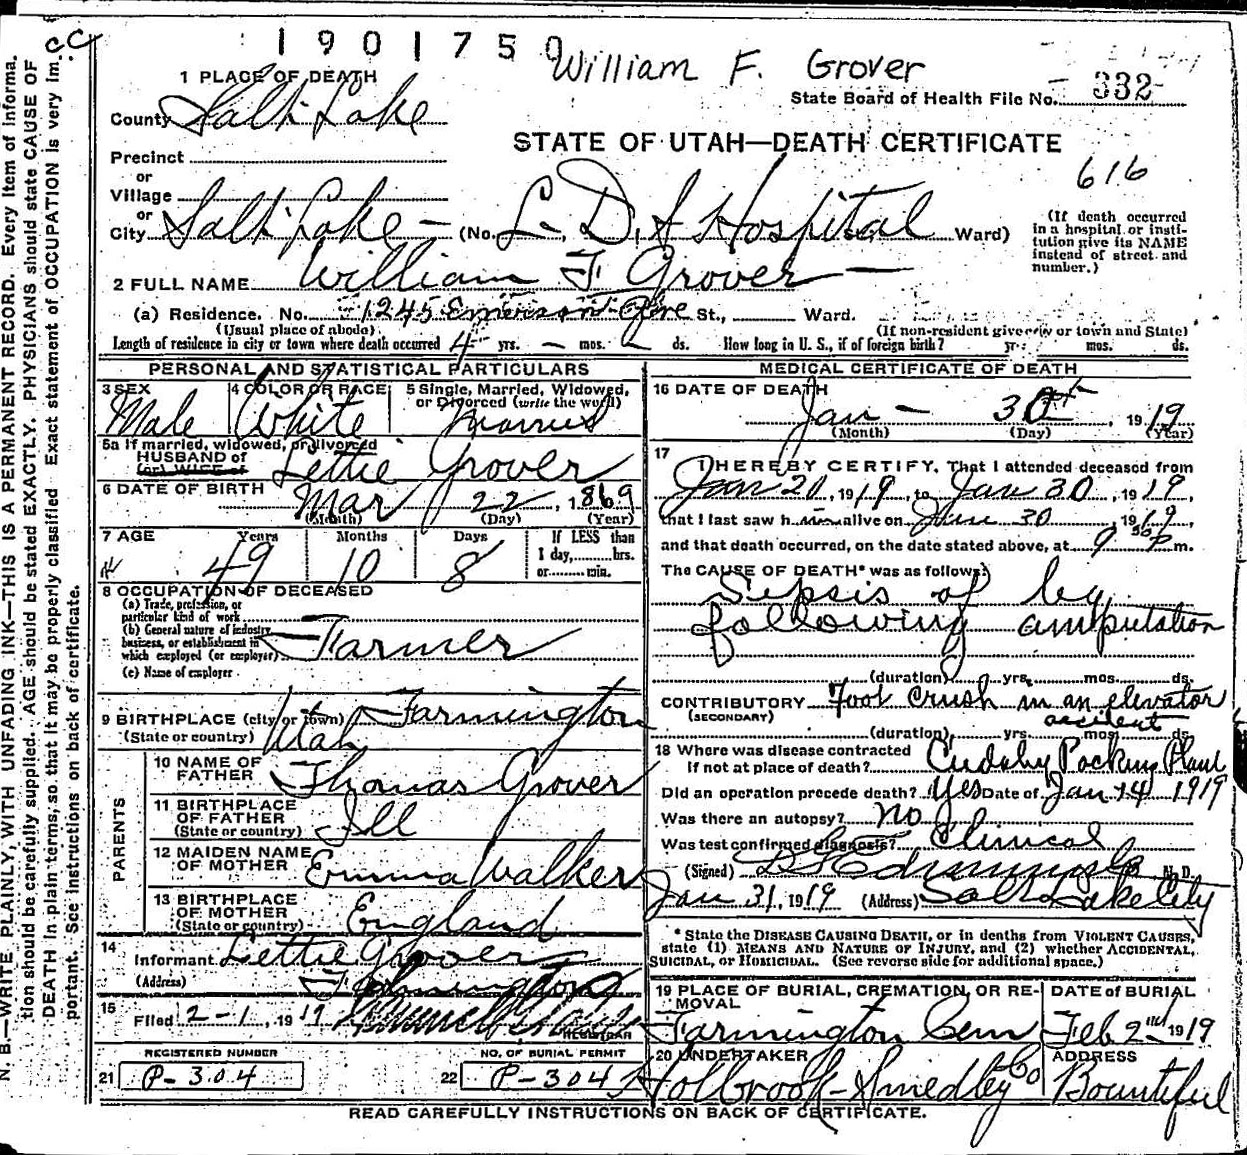 1901750
William F. Grover
1 PLACE OF DEATH
State Board of Health File No. 332
County Salt Lake
STATE OF UTAH—DEATH CERTIFICATE
Precinct
616
or
Village
or
City Salt Lake — (No. L. D. S Hospital Ward)
(If death occurred in a hospital or institution give its NAME instead of street and number.)
2 FULL NAME William F Grover
(a) Residence. No. 1245 Emerson Ave St., Ward.
(Usual place of abode)
(If non-resident give city or town and State)
Length of residence in city or town where death occurred yrs. — mos. ds. How long in U. S., if of foreign birth? yrs. mos. ds.
PERSONAL AND STATISTICAL PARTICULARS
3 SEX
Male
4 COLOR OR RACE
White
5 Single, Married, Widowed, or Divorced (write the word)
Married
5a If married, widowed, or divorced
HUSBAND of
(or) WIFE of
Lettie Grover
6 DATE OF BIRTH Mar 22, 1869
(Month) (Day) (Year)
7 AGE Years Months Days
49 10 8
If LESS than
1 day, hrs.
or min.
8 OCCUPATION OF DECEASED
(a) Trade, profession, or
particular kind of work
(b) General nature of industry,
business, or establishment in
which employed (or employer)
Farmer
(c) Name of employer
9 BIRTHPLACE (city or town) Farmington
(State or country) Utah
PARENTS
10 NAME OF FATHER Thomas Grover
11 BIRTHPLACE OF FATHER
(State or country) Ill
12 MAIDEN NAME OF MOTHER Emma Walker
13 BIRTHPLACE OF MOTHER
(State or country) England
14
Informant Lettie Grover
(Address) Farmington
15
Filed 2-1, 1919
REGISTRAR
REGISTERED NUMBER
21 P-304
NO. OF BURIAL PERMIT
22 P-304
MEDICAL CERTIFICATE OF DEATH
16 DATE OF DEATH
Jan — 30th, 1919
(Month) (Day) (Year)
17
I HEREBY CERTIFY, That I attended deceased from
Jan 20, 1919, to Jan 30, 1919,
that I last saw him alive on Jan 30 1919,
and that death occurred, on the date stated above, at 9 50 P m.
The CAUSE OF DEATH* was as follows:
Sepsis of leg
following amputation
(duration) yrs. mos. ds.
CONTRIBUTORY Foot crush in an elevator
(SECONDARY) accident
(duration) yrs. mos. ds.
18 Where was disease contracted
If not at place of death? Cudahy Packing Plant
Did an operation precede death? Yes Date of Jan 14 1919
Was there an autopsy? No
Was test confirmed diagnosis? Clinical
(Signed) M. D.
Jan 31, 1919 (Address) Salt Lake City
* State the DISEASE CAUSING DEATH, or in deaths from VIOLENT CAUSES,
state (1) MEANS AND NATURE OF INJURY, and (2) whether ACCIDENTAL,
SUICIDAL, or HOMICIDAL. (See reverse side for additional space.)
19 PLACE OF BURIAL, CREMATION, OR REMOVAL
Farmington Cem
DATE of BURIAL
Feb 2nd 1919
20 UNDERTAKER
Holbrook-Smedley Co
ADDRESS
Bountiful
READ CAREFULLY INSTRUCTIONS ON BACK OF CERTIFICATE.
N. B.—WRITE PLAINLY, WITH UNFADING INK—THIS IS A PERMANENT RECORD. Every item of informa-
tion should be carefully supplied. AGE should be stated EXACTLY. PHYSICIANS should state CAUSE OF
DEATH in plain terms, so that it may be properly classified. Exact statement of OCCUPATION is very im-
portant. See instructions on back of certificate.